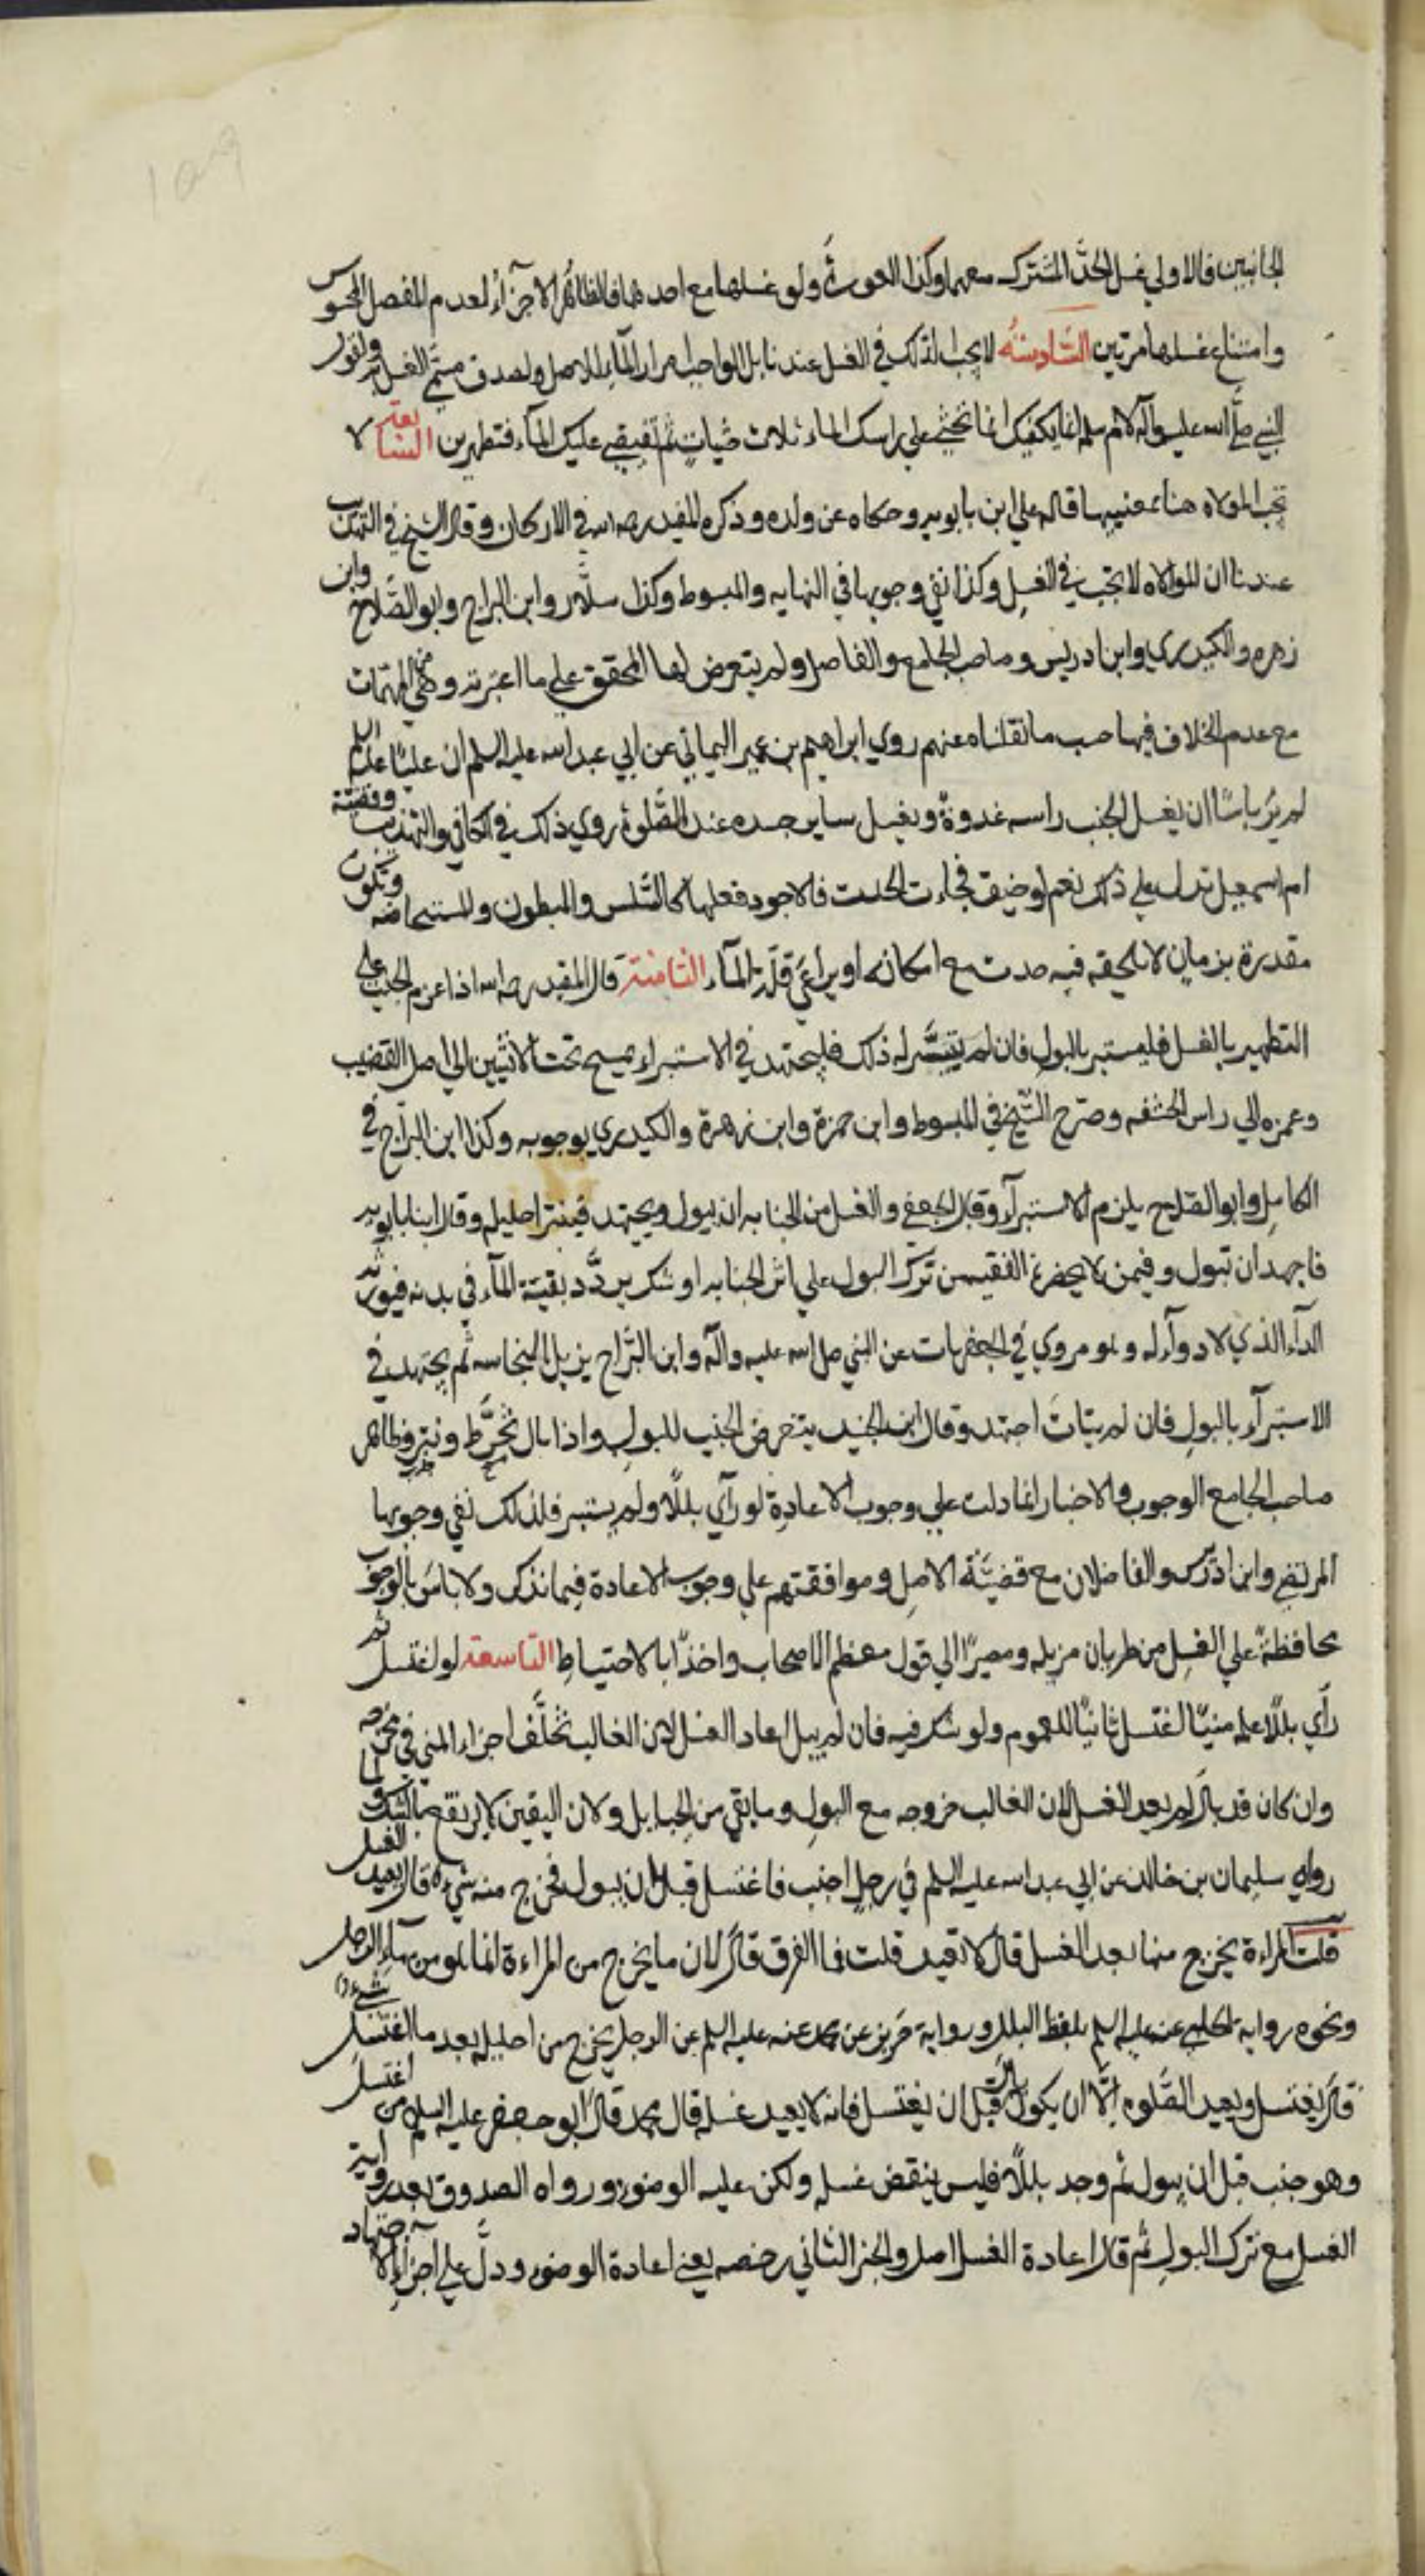 الجانبين فالاولي غسل الحدّ المشترك معهما وكذا العورة ولو غسلها مع احدهما فالظاهر الاجزاء لعدم المفصل المحسوس
وامتناع غسلها مرتين السّادسة لا يجب الدلك في الغسل عندنا بل الواجب امرار الماء للاصل ولصدق مسمّى الغسل ولقول
النبي صلّى الله عليه وآله لام سلمة انما يكفيك ان تحثي علي راسك الماء ثلاث حثيات ثم تفيضي عليك الماء فتطهرين السابعة لا
تجب الموالاه هنا بمعنييها قاله علي ابن بابويه وحكاه عن ولده وذكره المفيد رحمه الله في الاركان وقال الشيخ في التهذيب
عندنا ان الموالاه لا تجب في الغسل وكذا نفي وجوبها في النهايه والمبسوط وكذا سلّار وابن البراج وابو الصّلاح وابن
زهره والكيدري وابن ادريس وصاحب الجامع والفاضل ولم يتعرض لها المحقق علي ما اعتبرته وهي من المهمات
مع عدم الخلاف فيها حسب ما نقلناه عنهم روي ابراهيم بن عمير اليماني عن ابي عبدالله عليه السلم ان عليّا عليه السلم
لم يرَ باسًا ان يغسل الجنب راسه غدوةً ويغسل ساير جسده عند الصّلوة روي ذلك في الكافي والتهذيب وقضيّة
ام اسمعيل تدل علي ذلك نعم لو ضيق فجاءت الحدث فالاجود فعلها كالسّلس والمبطون والمستحاضه وتكون
مقدرة بزمان لا يلحقه فيه حدث مع امكانه او يراعي قلّة الماء الثامنة قال المفيد رحمه الله اذا عزم الجنب علي
التطهير بالغسل فليستبر بالبول فان لم يتيسّر له ذلك فليجتهد في الاستبراء يمسح تحت الانثيين الي اصل القضيب
وعصره الي راس الحشفه وصرّح الشيخ في المبسوط وابن حمزة وابن زهرة والكيدري بوجوبه وكذا ابن البرّاج في
الكامل وابو الصّلاح يلزم الاستبراء وقال الجعفي والغسل من الجنابه ان يبول ويجتهد فينتر احليله وقال ابنا بابويه
فاجهد ان تبول وفيمن لا يحضره الفقيه من ترك البول علي اثر الجنابه اوشك تردّد بقيّة الماء في بدنه فيورثه
الداء الذي لا دواء له وهو مروي في الجعفريات عن النبي صلى الله عليه وآله وابن البرّاج يزيل النجاسه ثم يجتهد في
الاستبراء بالبول فان لم يتأتّ اجتهد وقال ابن الجنيد يتعرض الجنب للبول واذا بال تخرّط ونتر وظاهر
صاحب الجامع الوجوب والاخبار انما دلت علي وجوب الاعادة لو رآي بللًا ولم يستبر فلذلك نفي وجوبها
المرتضي وابن ادريس والفاضلان مع قضيّة الاصل وموافقتهم علي وجوب الاعادة فيما نذكر ولا باس بالوجوب
محافظةً علي الغسل من طريان مزيله ومصيرًا الي قول معظم الاصحاب واخذًا بالاحتياط التاسعة لو اغتسل ثم
رآي بللًا علمه منيًّا اغتسل ثانيًا للعموم ولو شك فيه فان لم يبل اعاد الغسل لان الغالب تخلّف اجزاء المني في مخرجه
وان كان قد بال لم يعد الغسل لان الغالب خروجه مع البول وما بقي من الحبايل ولان اليقين لا يرتفع بالشك ولما
رواه سليمان بن خالد عن ابي عبدالله عليه السلم في رجل اجنب فاغتسل قبل ان يبول فخرج منه شيء قال يعيد الغسل
قلت المراءة يخرج منها بعد الغسل قال لا تعيد قلت فما الفرق قال لان ما يخرج من المراءة انما هو من ماء الرجل
ونحوه رواية الحلبي عنه عليه السلم بلفظ البلل ورواية حريز عن محمد عنه عليه السلم عن الرجل يخرج من احليله بعد ما اغتسل شيء
قال يغتسل ويعيد الصّلوه الّا ان يكون بال قبل ان يغتسل فانه لا يعيد غسله قال محمد قال ابو جعفر عليه السلم من اغتسل
وهو جنب قبل ان يبول ثم وجد بللًا فليس ينقض غسله ولكن عليه الوضوء ورواه الصدوق بعد رواية
الغسل مع ترك البول ثم قال اعادة الغسل اصل والخبر الثاني رخصه يعني اعادة الوضوء ودلّ علي اجزاء الاجتهاد